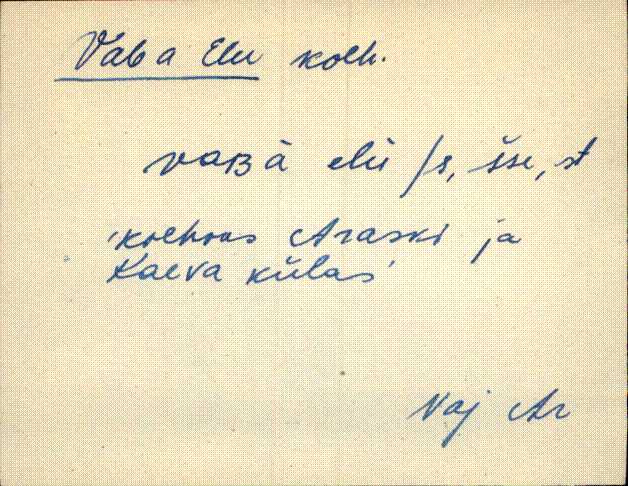 Vaba Elu kolh.
vaʙà elù /s, šse, st
'kolhoos Araski ja
Kaeva külas'
Vaj Ar